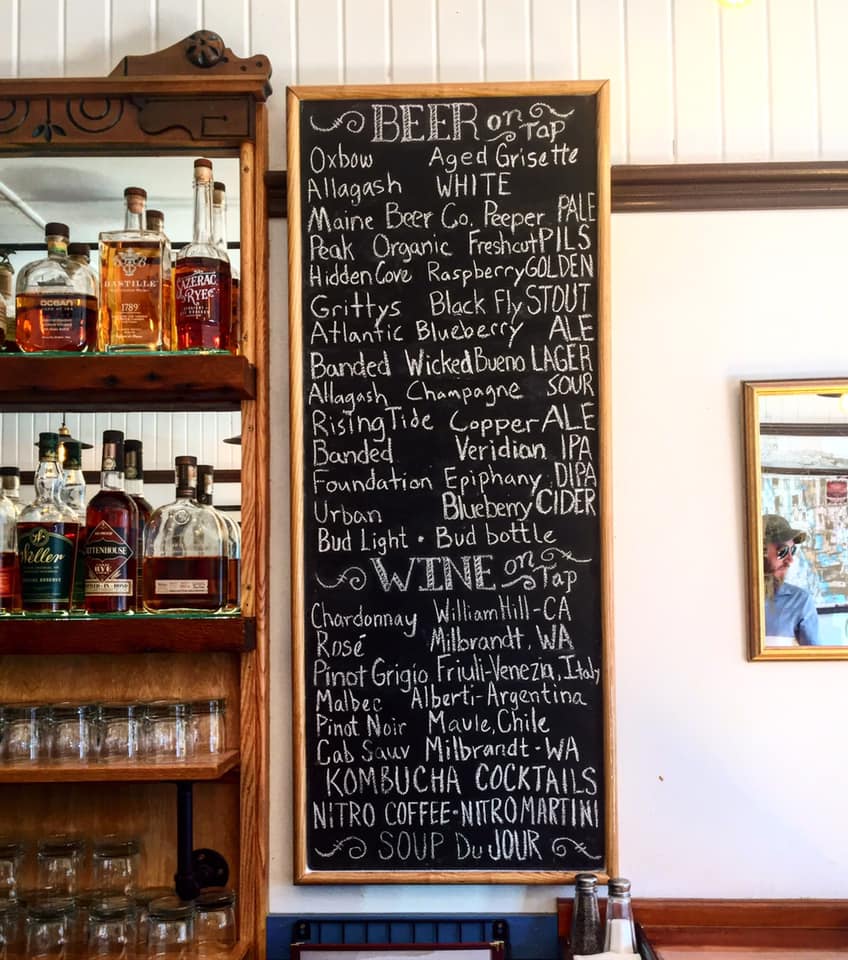 BEER on Tap
Oxbow Aged Grisette
Allagash WHITE
Maine Beer Co. Peeper PALE
Peak Organic Freshcut PILS
Hidden Cove Raspberry GOLDEN
Grittys Black Fly STOUT
Atlantic Blueberry ALE
Banded Wicked Bueno LAGER
Allagash Champagne SOUR
Rising Tide Copper ALE
Banded Veridian IPA
Foundation Epiphany DIPA
Urban Blueberry CIDER
Bud Light • Bud bottle
WINE on Tap
Chardonnay William Hill - CA
Rosé Milbrandt, WA
Pinot Grigio Friuli-Venezia, Italy
Malbec Alberti-Argentina
Pinot Noir Maule, Chile
Cab Sauv Milbrandt - WA
KOMBUCHA COCKTAILS
NITRO COFFEE - NITRO MARTINI
SOUP Du JOUR
OCEAN
BASTILLE
1789
SAZERAC
RYE
Weller
RITTENHOUSE
RYE